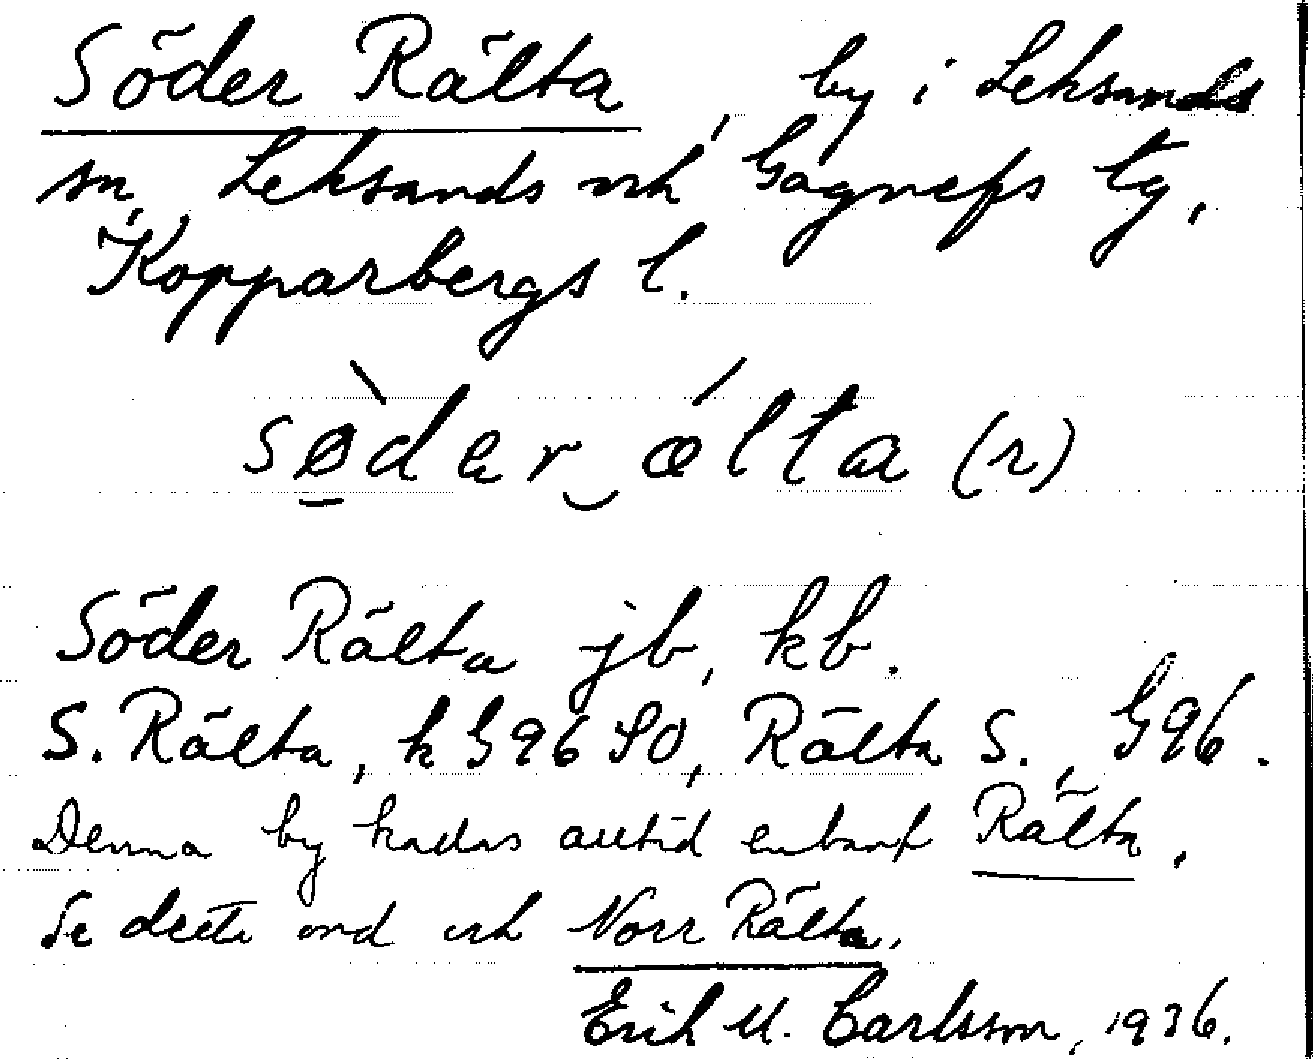 Söder Rälta, by i Leksands
sn, Leksands och Gagnefs tg,
Kopparbergs l.
sø̀der‿ǽlta (r)
Söder Rälta jb, kb.
S. Rälta, k G96 SO, Rälta S., G96.
Denna by kallas alltid enbart Rälta.
Se detta ord och Norr Rälta.
Erik M. Carlsson, 1936.